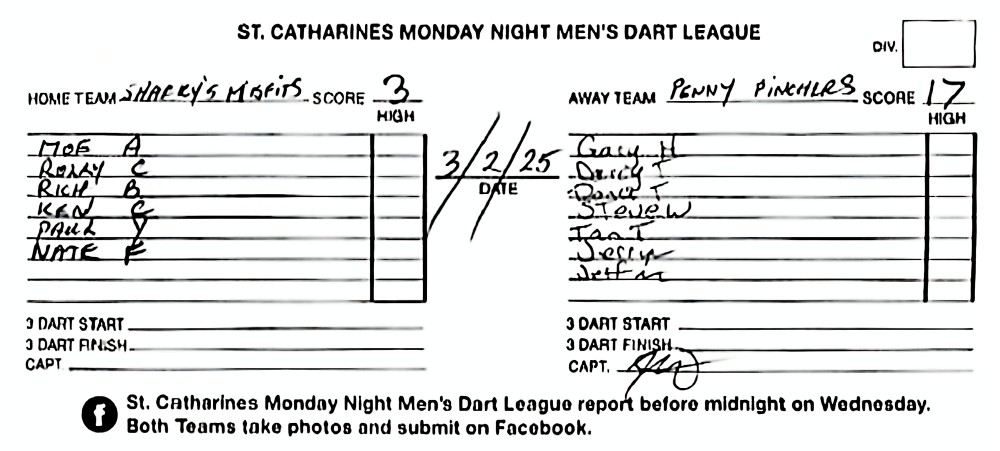 ST. CATHARINES MONDAY NIGHT MEN'S DART LEAGUE
DIV.
HOME TEAM SHARKY'S MISFITS SCORE 3
HIGH
AWAY TEAM PENNY PINCHERS SCORE 17
HIGH
MOE A
RORRY C
RICH B
KEN C
PAUL Y
NATE F
3/2/25
DATE
Gary H
Darcy T
T
STEVE W
Ian T
Jeff M
3 DART START
3 DART FINISH
CAPT.
3 DART START
3 DART FINISH
CAPT.
St. Catharines Monday Night Men's Dart League report before midnight on Wednesday.
Both Teams take photos and submit on Facebook.